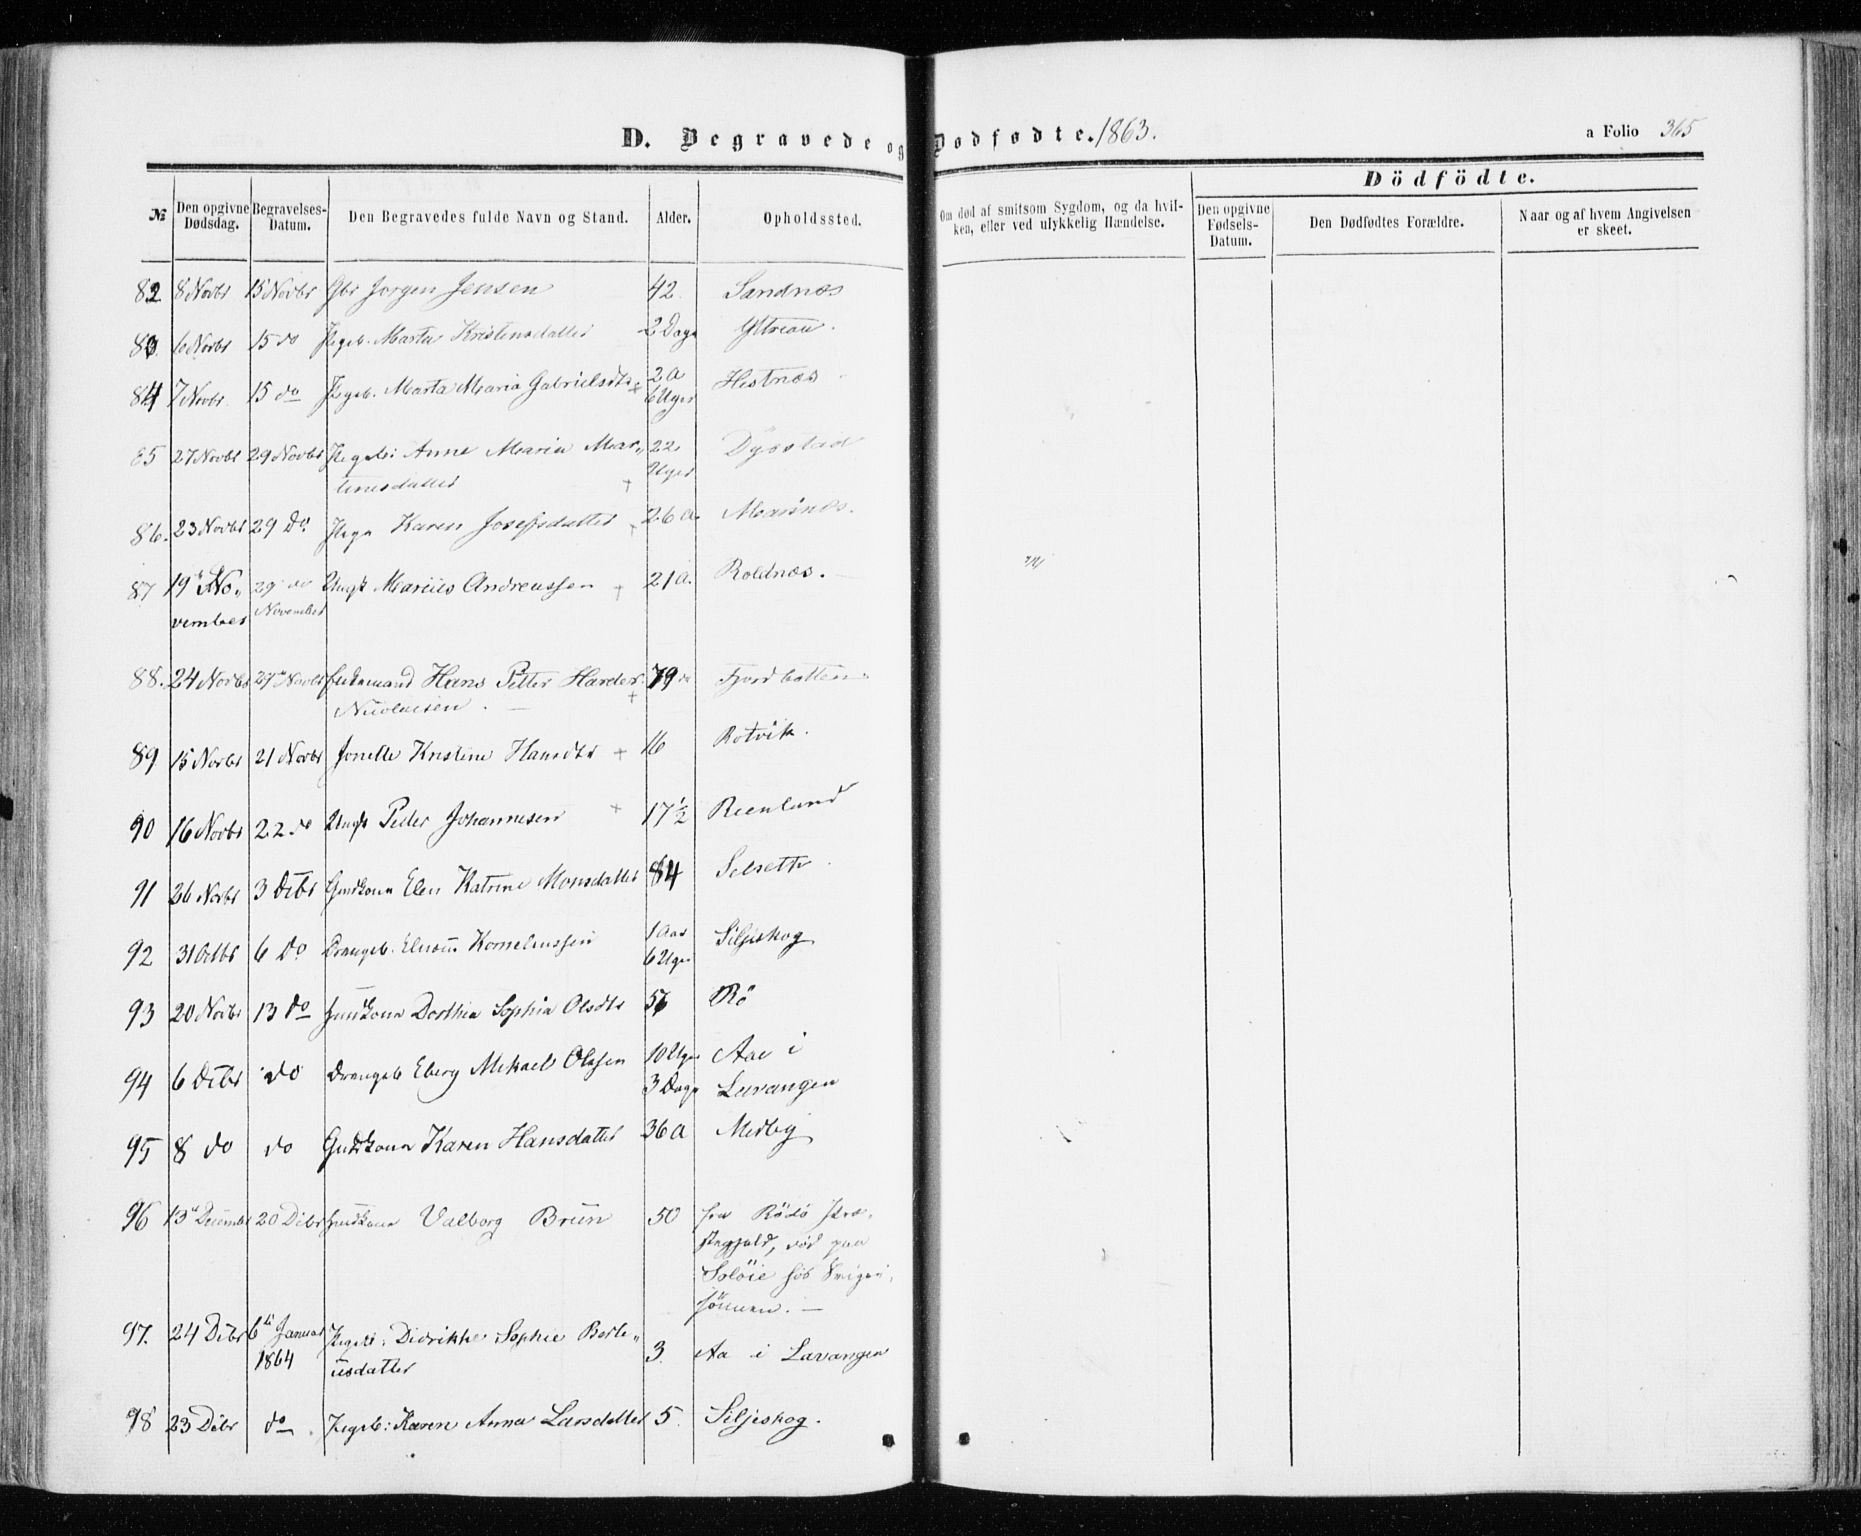 D. Begravede og Dødfødte. 1863.
a Folio 365
Dödfödte.
№
Den opgivne Dødsdag.
Begravelses-Datum.
Den Begravedes fulde Navn og Stand.
Alder.
Opholdssted.
Om død af smitsom Sygdom, og da hvilken, eller ved ulykkelig Hændelse.
Den opgivne Fødsels-Datum.
Den Dødfødtes Forældre.
Naar og af hvem Angivelsen er skeet.
82 8 Novbr 15 Novbr Gbr Jørgen Jensen 42. Sandnæs
83 6 Novbr 15 do Pigeb. Marta Kristensdatter 2 Dage Yttreaa.
84 7 Novbr. 15 do Pigeb. Marta Maria Gabrielsdtr + 2 a Hestnæs
6 Uger
85 27 Novbr 29 Novbr Pigeb: Anne Maria Mar- 22 Dyrstad
tinusdatter + Uger
86. 23 Novbr 29 Do Pige Karen Josefsdatter + 26 a. Maasnæs.
87 19 No- 29 do Ungk Marius Andreassen + 21 a. Roldnæs.
vember November
88. 24 Novbr 29 Novbr Hans Petter Harder 79 Fjordbotten
Nicolaisen. +
89 15 Novbr 21 Novbr Jonette Kristine Hansdtr + 16 Rotvik.
90 16 Novbr 22 do Ungk Peder Johannesen + 17 ½ Reenlund
91 26 Novbr 3 Dcbr Gmdkona Elen Katrine Monsdatter 84 Selsette
92 31 Octbr 6 Do Drengeb. Kornelinssen 1 Aar Siljeskog
6 Uger
93 20 Novbr 13 do Gmdkona Dorthea Sophia Olsdtr 56 Rö
94 6 Dcbr do Drengeb Eberg Mikael Olssen 10 Uger Aae i
3 Dage Lavangen
95 8 do do Gmdkona Karen Hansdatter 36 a Medby
96 13 Decembr 20 Dcbr Gmdkona Valborg Brun 50 fra Rödö Præ-
stegjeld, död paa
Solöie
97. 24 Dcbr 6te Januar Pigeb: Didrikke Sophie Berte-
1864 usdatter 3. Aa i Lavangen
98 23 Dcbr do Pigeb: Karen Anna Larsdatter 5. Siljeskog.